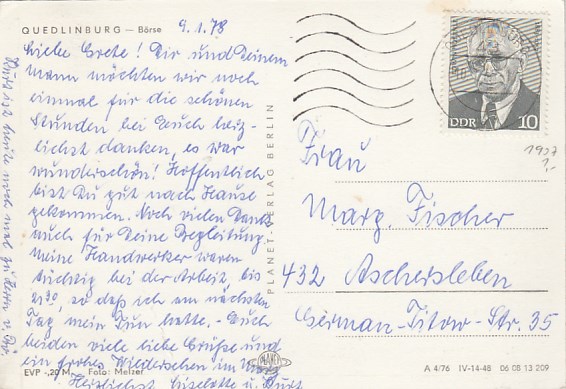 QUEDLINBURG — Börse
9.1.78
Liebe Grete! Dir und Deinem
Mann möchten wir noch
einmal für die schönen
Stunden bei Euch herz-
lichst danken, es war
wunderschön! Hoffentlich
bist Du gut nach Hause
gekommen. Noch vielen Dank
auch für Deine Begleitung.
Meine Handwerker waren
tüchtig bei der Arbeit, bis
so daß ich am nächsten
Tag mein Tun hatte. Euch
beiden viele liebe Grüße und
ein frohes Wiedersehen im
Herzlichst Liselotte u. Kurt
Kurt ist heute noch mal zu
EVP -,20 M. Foto: Melzer
PLANET-VERLAG BERLIN
DDR 10
1937
1,-
Frau
Marg. Fischer
432 Aschersleben
German-Titow-Str. 35
A 4/76 IV-14-48 06 08 13 209